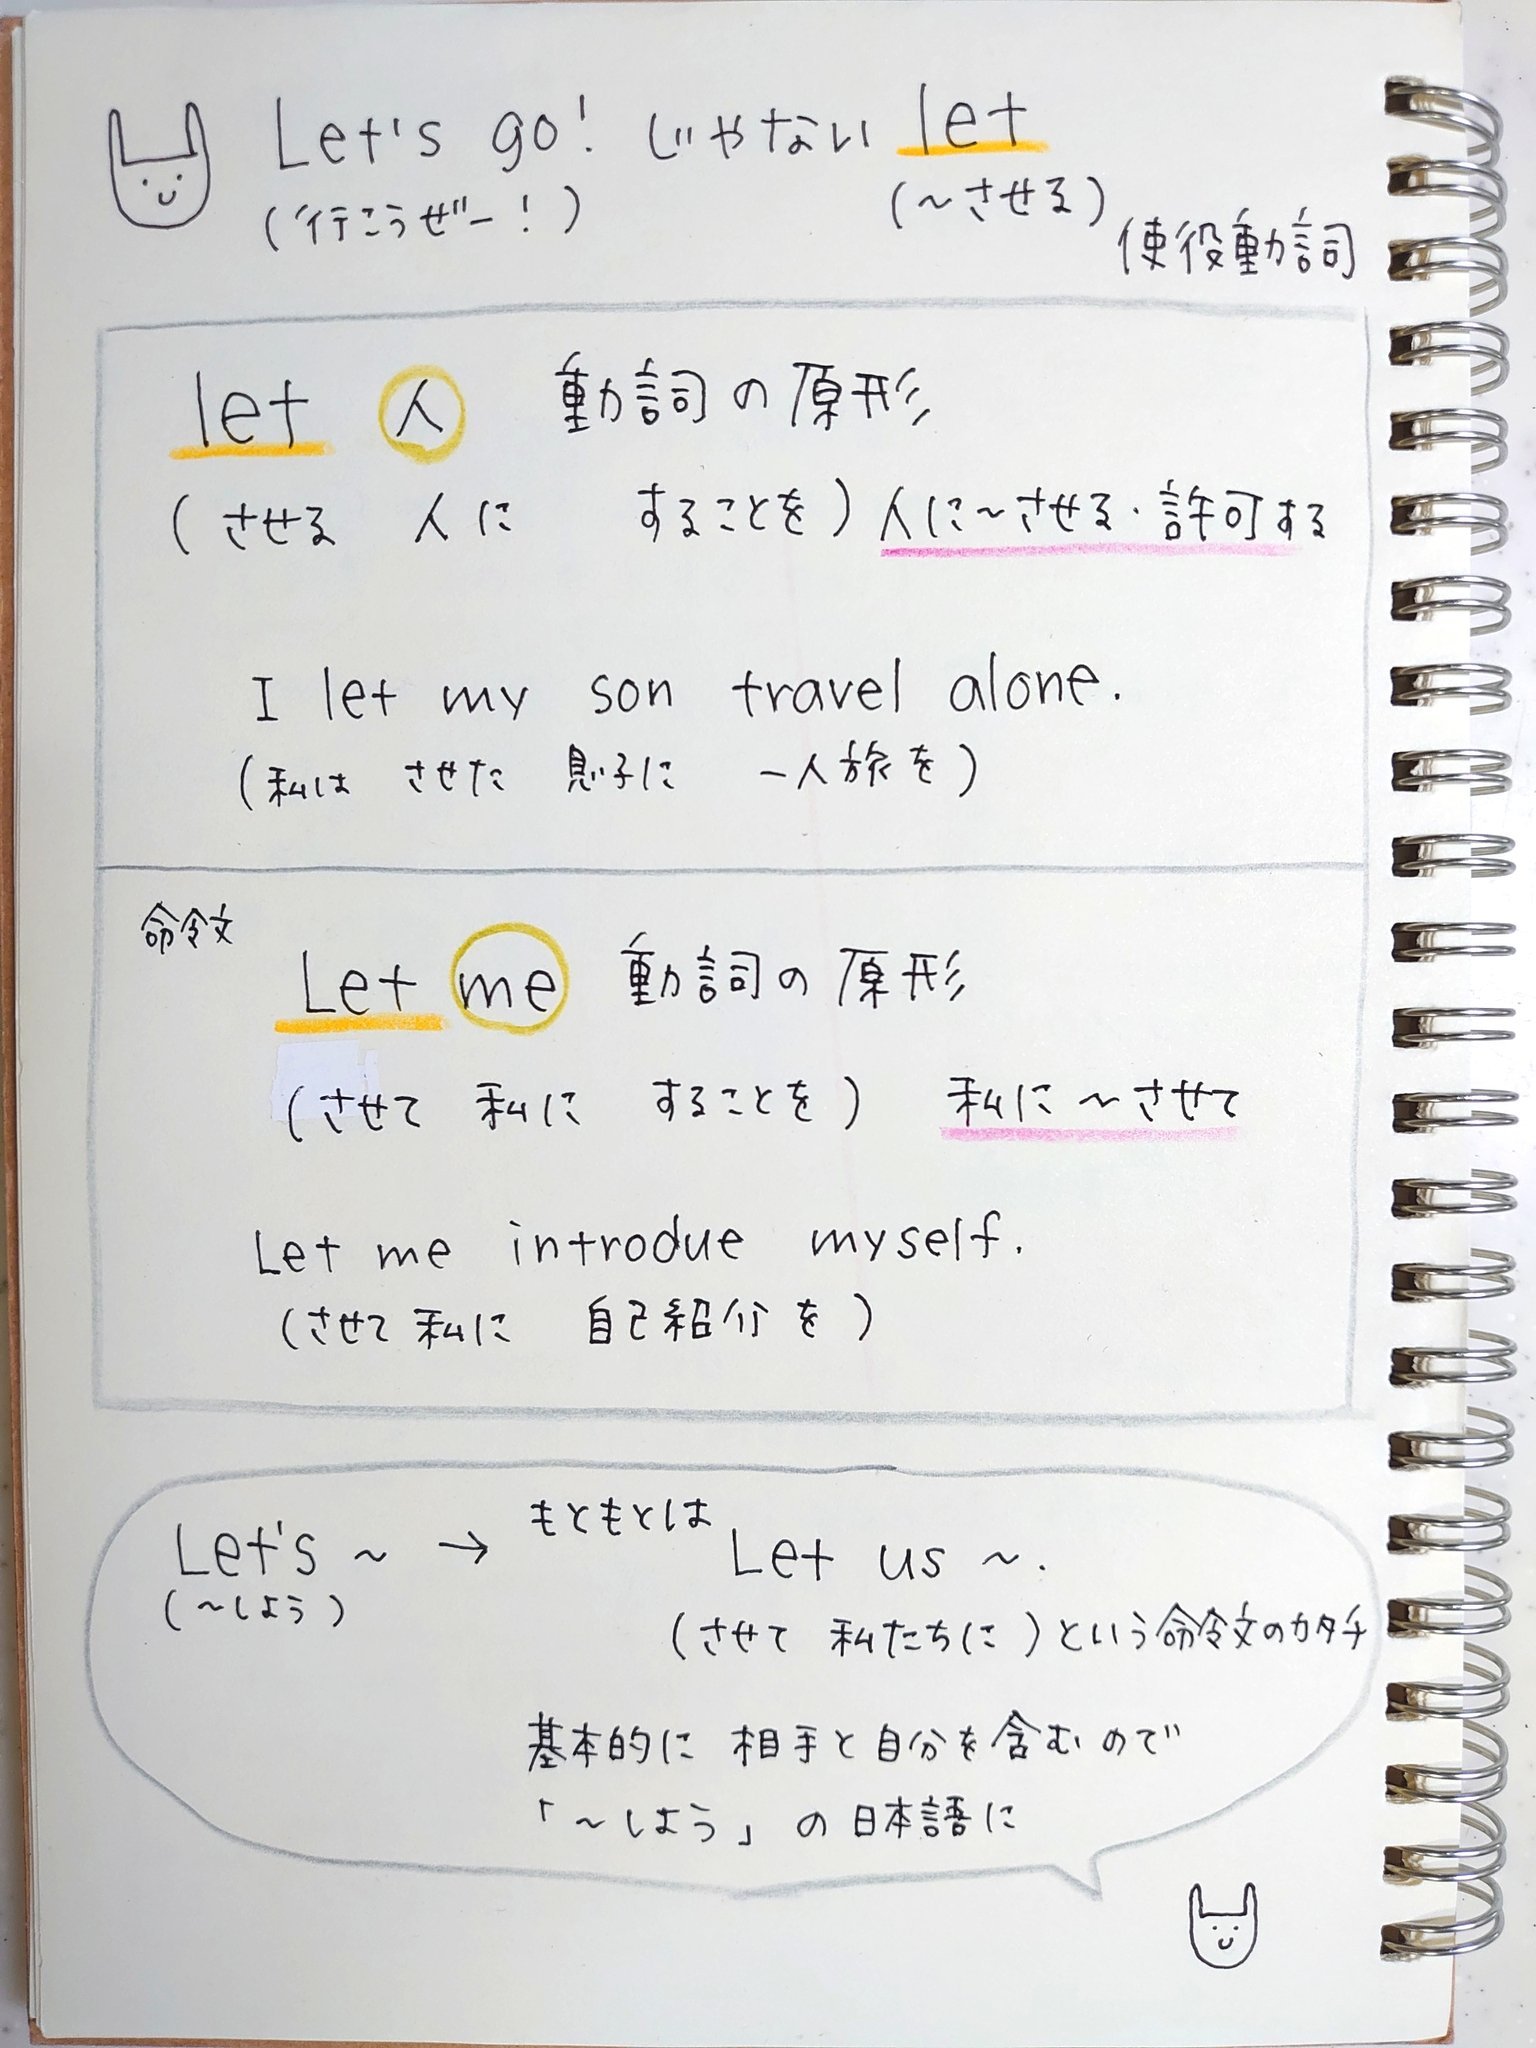 Let's go! じゃない let
(行こうぜー!) (~させる) 使役動詞
let 人 動詞の原形
(させる 人に することを) 人に~させる・許可する
I let my son travel alone.
(私は させた 息子に 一人旅を)
命令文
Let me 動詞の原形
(させて 私に することを) 私に~させて
Let me introdue myself.
(させて 私に 自己紹介を)
Let's ~ → もともとは Let us ~.
(~しよう) (させて 私たちに)という命令文のカタチ
基本的に 相手と自分を含むので
「~しよう」の日本語に